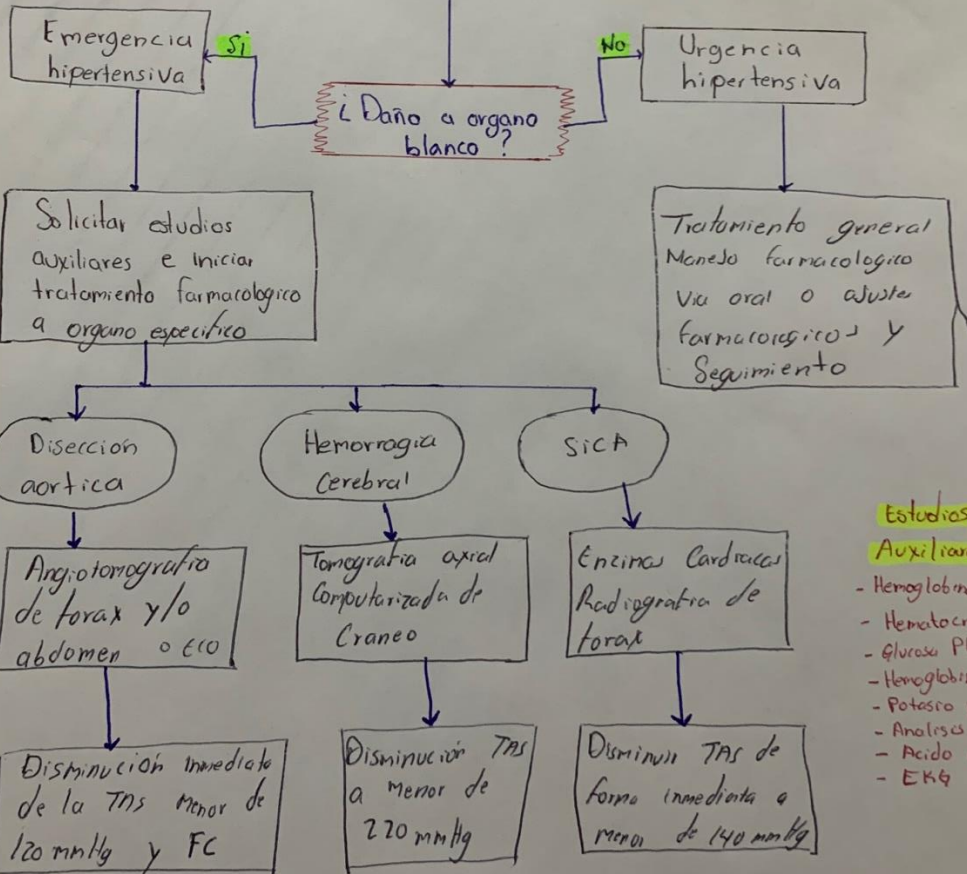 Emergencia
hipertensiva
Si
¿Daño a organo
blanco?
No
Urgencia
hipertensiva
Solicitar estudios
auxiliares e iniciar
tratamiento farmacologico
a organo especifico
Tratamiento general
Manejo farmacologico
Via oral o ajustes
farmacologicos y
Seguimiento
Disección
aortica
Hemorragia
Cerebral
SiCA
Angiotomografia
de torax y/o
abdomen o ECO
Tomografia axial
Computarizada de
Craneo
Enzimas Cardiacas
Radiografia de
torax
Disminución inmediata
de la TAS menor de
120 mmHg y FC
Disminución TAS
a menor de
220 mmHg
Disminuir TAS de
forma inmediata a
menor de 140 mmHg
Estudios
- Glucosa
- Potasio
- Acido
- EKG